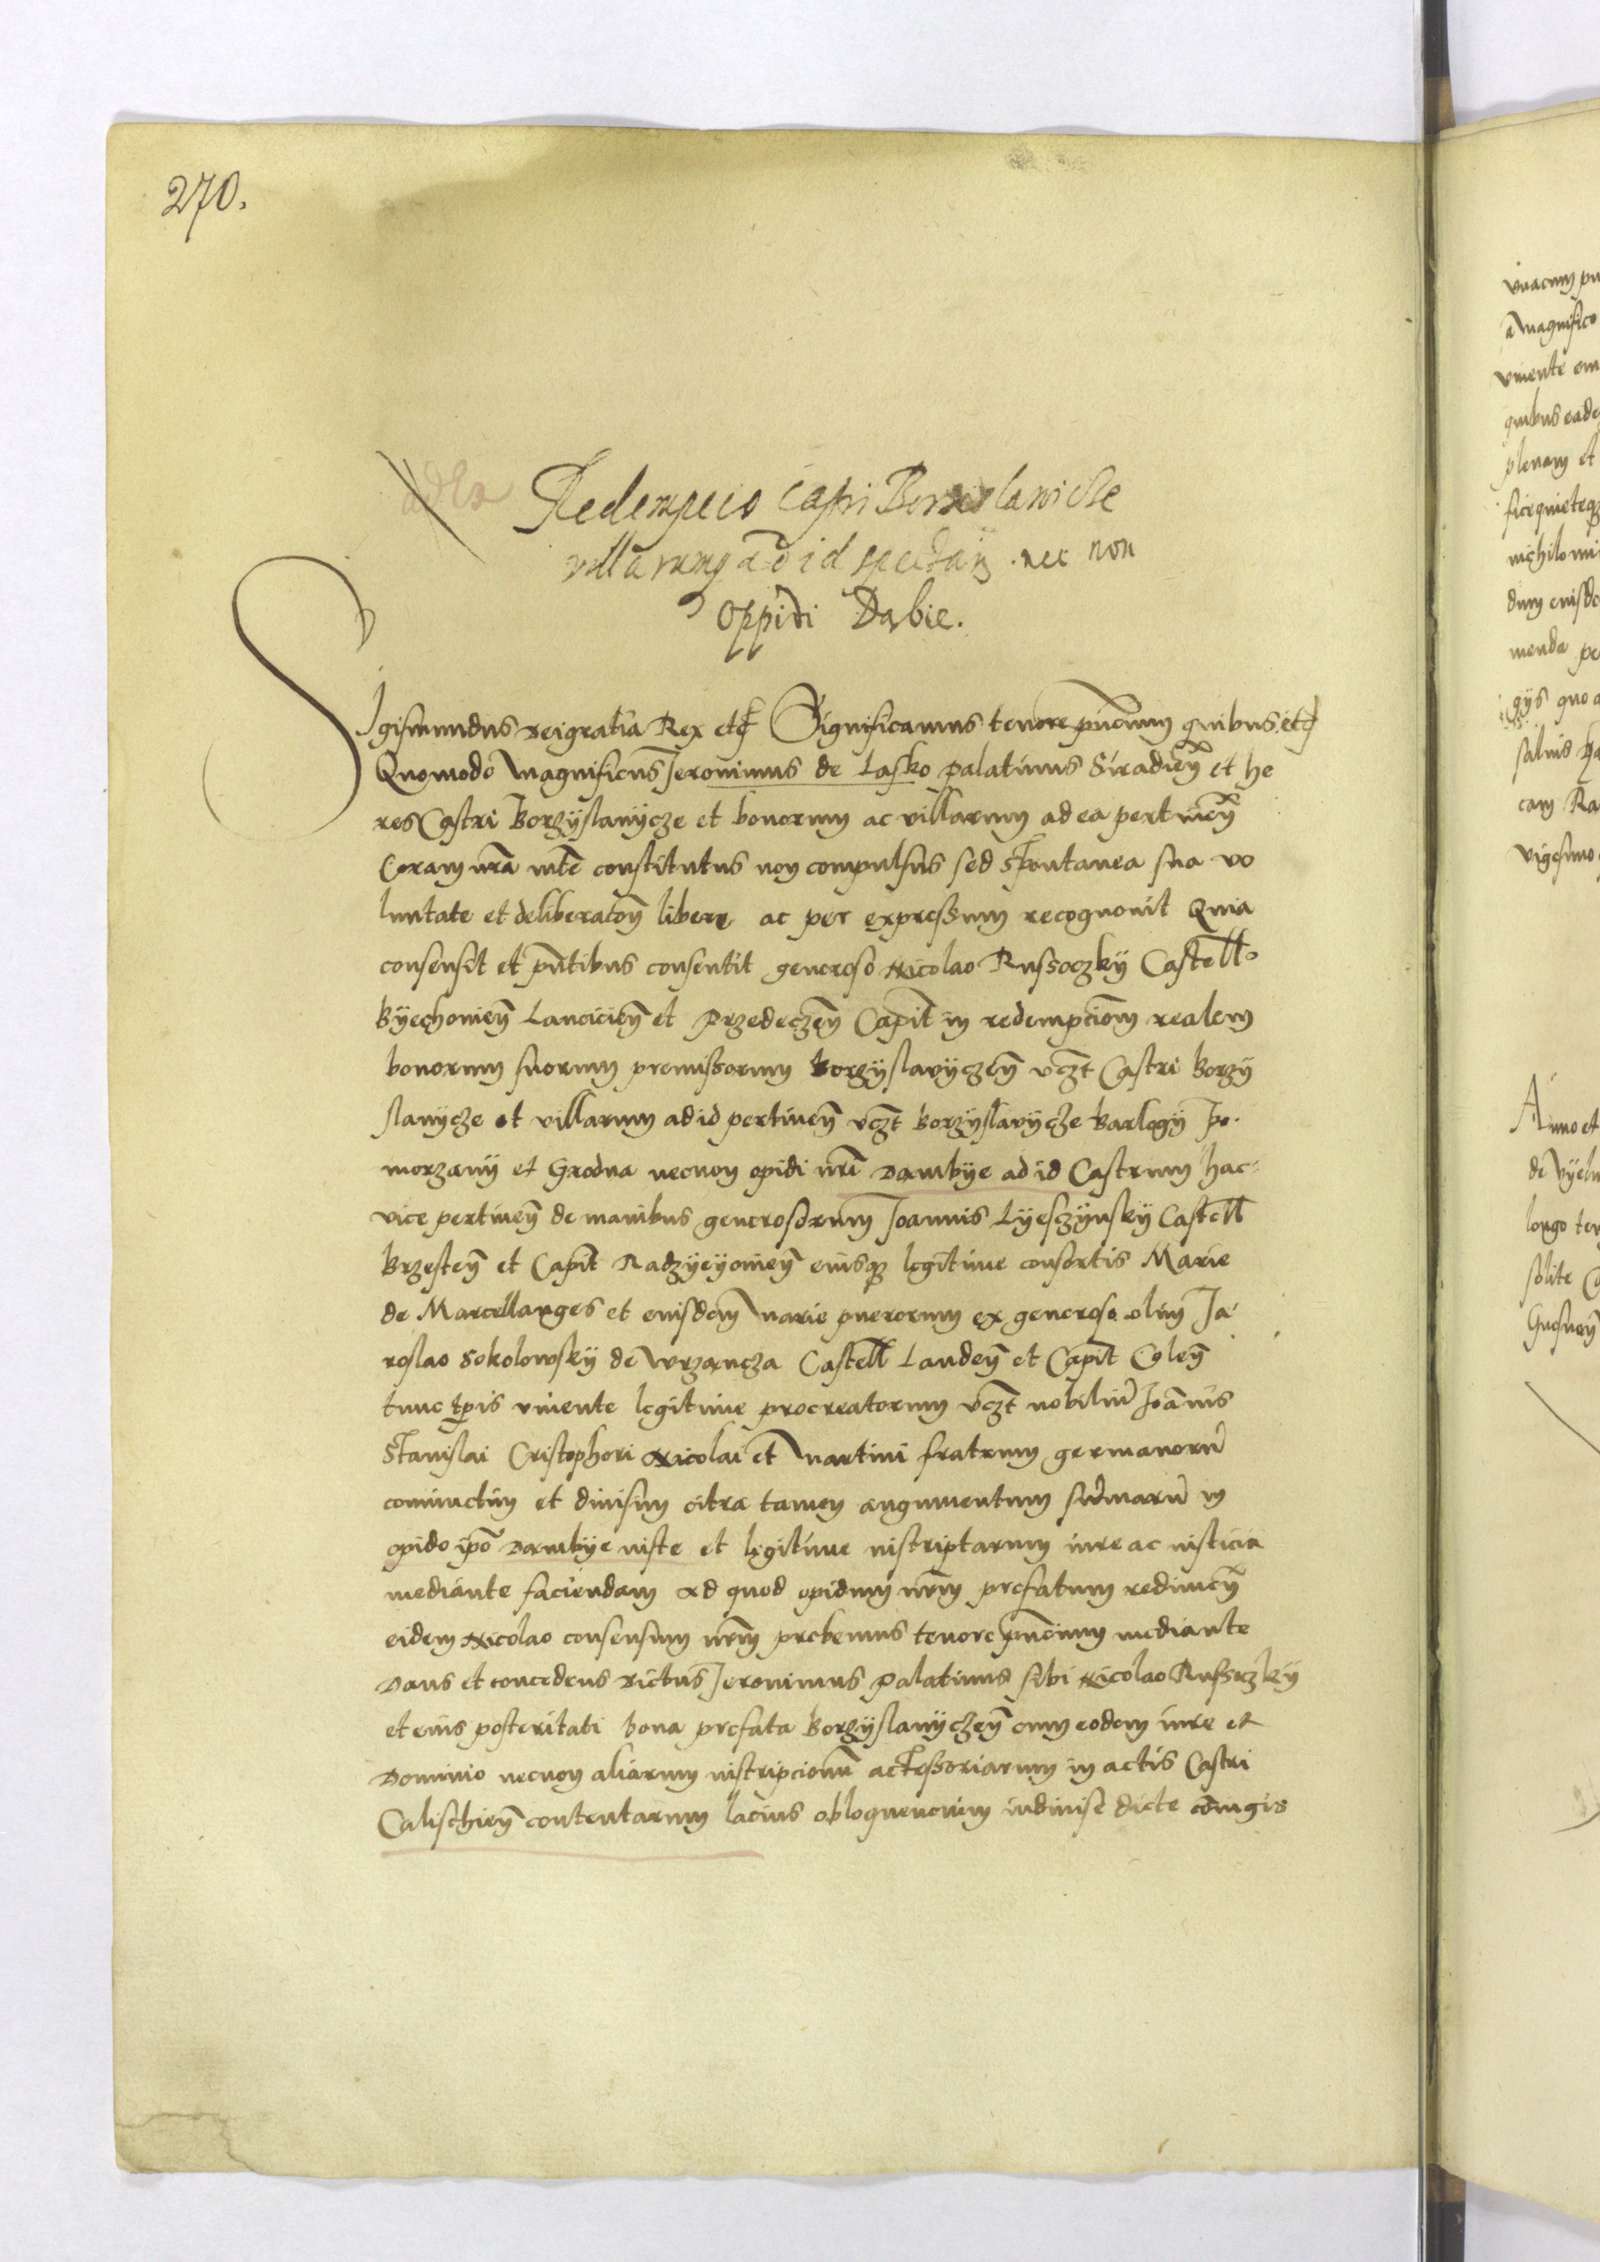 270.
Redempcio Castri Borzislawicze
villarumq̃ ad id spectan̄. nec non
Oppidi Dąbie.
Sigismundus deigratia Rex etc̃ Significamus tenore pn̄cium quibus etc̃
Quomodo Magnificus Jeronimus de Lasko palatinus Siradien̄ et he
res Castri Borzyslavycze et bonorum ac villarum ad ea pertinen̄
Coram nr̄a mtē constitutus non compulsus sed spontanea sua vo
luntate et deliberaton̄ libere ac per expressum recognovit Quia
consensit et pn̄tibus consentit generoso Nicolao Russoczky Castell.
Byechovien̄ Lancicien̄ et Przedeczen̄ Capit̄ in redempcionem realem
bonorum suorum premissorum Borzyslavyczen̄ vczt̄ Castri Borzy
slavycze et villarum ad id pertinen̄ vczt̄ Borzyslavycze Barlogy Po
morzany et Grodna necnon opidi nr̄i Dambye ad id Castrum hac
vice pertinen̄ de manibus generosorum Joannis Lyesczynsky Castell
Brzesten̄ et Capit̄ Radzyeyovien̄ eiusq̨ legitime consortis Marie
de Marcellanges et eiusdem Marie puerorum ex generoso olim Ja
roslao Sokolowsky de Wrzancza Castell Landen̄ et Capit̄ Colen̄
tunc tp̄is vivente legitime procreatorum vczt̄ nobiliū Joānis
Stanislai Cristophori Nicolai et Martini fratrum germanorū
coniunctim et divisim citra tamen augumentum sūmarū in
opido ip̄o Dambye iuste et legitime inscriptarum iure ac iusticia
mediante faciendam Ad quod opidum nr̄m prefatum redimen̄
eidem Nicolao consensum nr̄m prebemus tenore pn̄cium mediante
Dans et concedens dictus Jeronimus palatinus sibi Nicolao Russoczky
et eius posteritati bona prefata Borzyslavyczen̄ cum eodem iure et
Dominio necnon aliarum inscripcionū accessoriarum in actis Castri
Calischien̄ contentarum lacius obloquencium indivise dicte coniugis